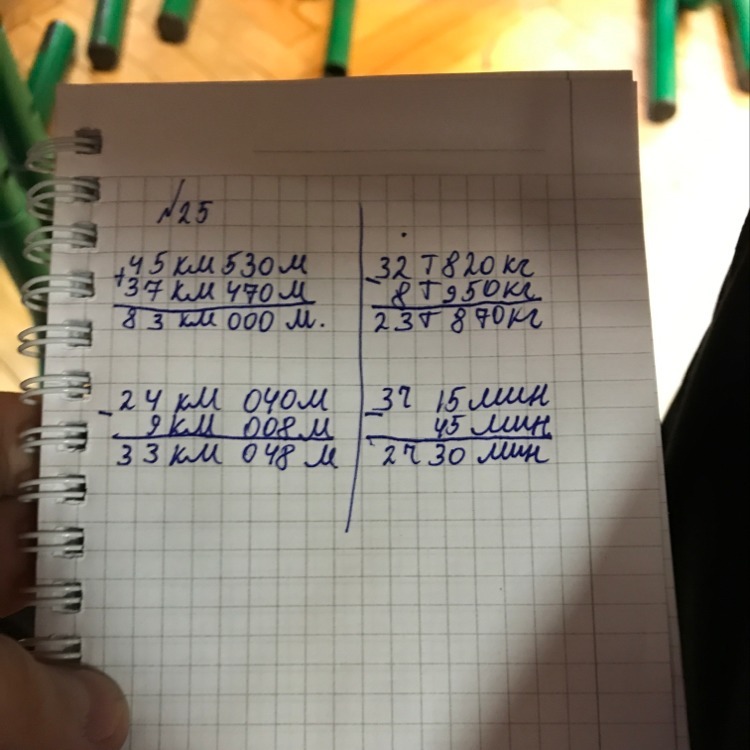 №25
45 км 530 м
+ 37 км 470 м
83 км 000 м.
- 24 км 040 м
9 км 008 м
33 км 048 м
- 32 т 820 кг
8 т 950 кг
23 т 870 кг
- 3ч 15 мин
45 мин
2ч 30 мин